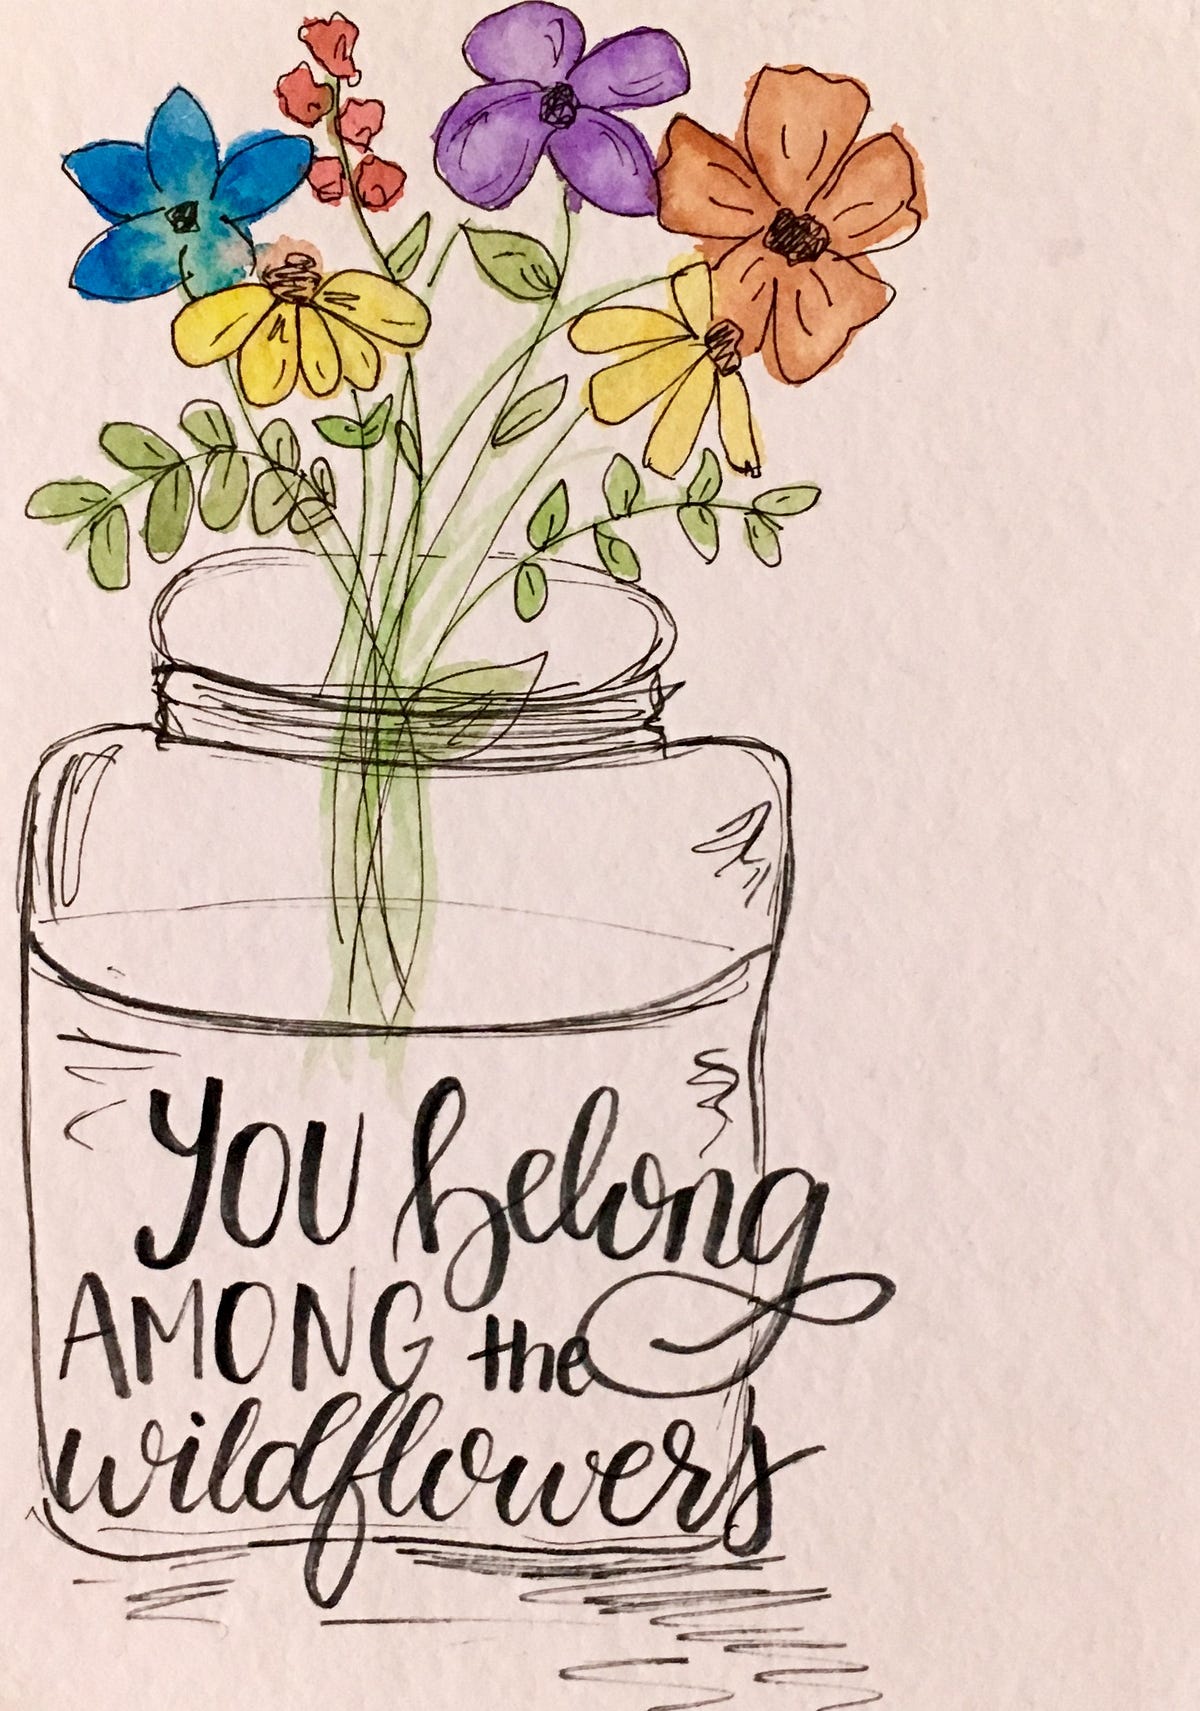 YOU belong
AMONG the
wildflowers